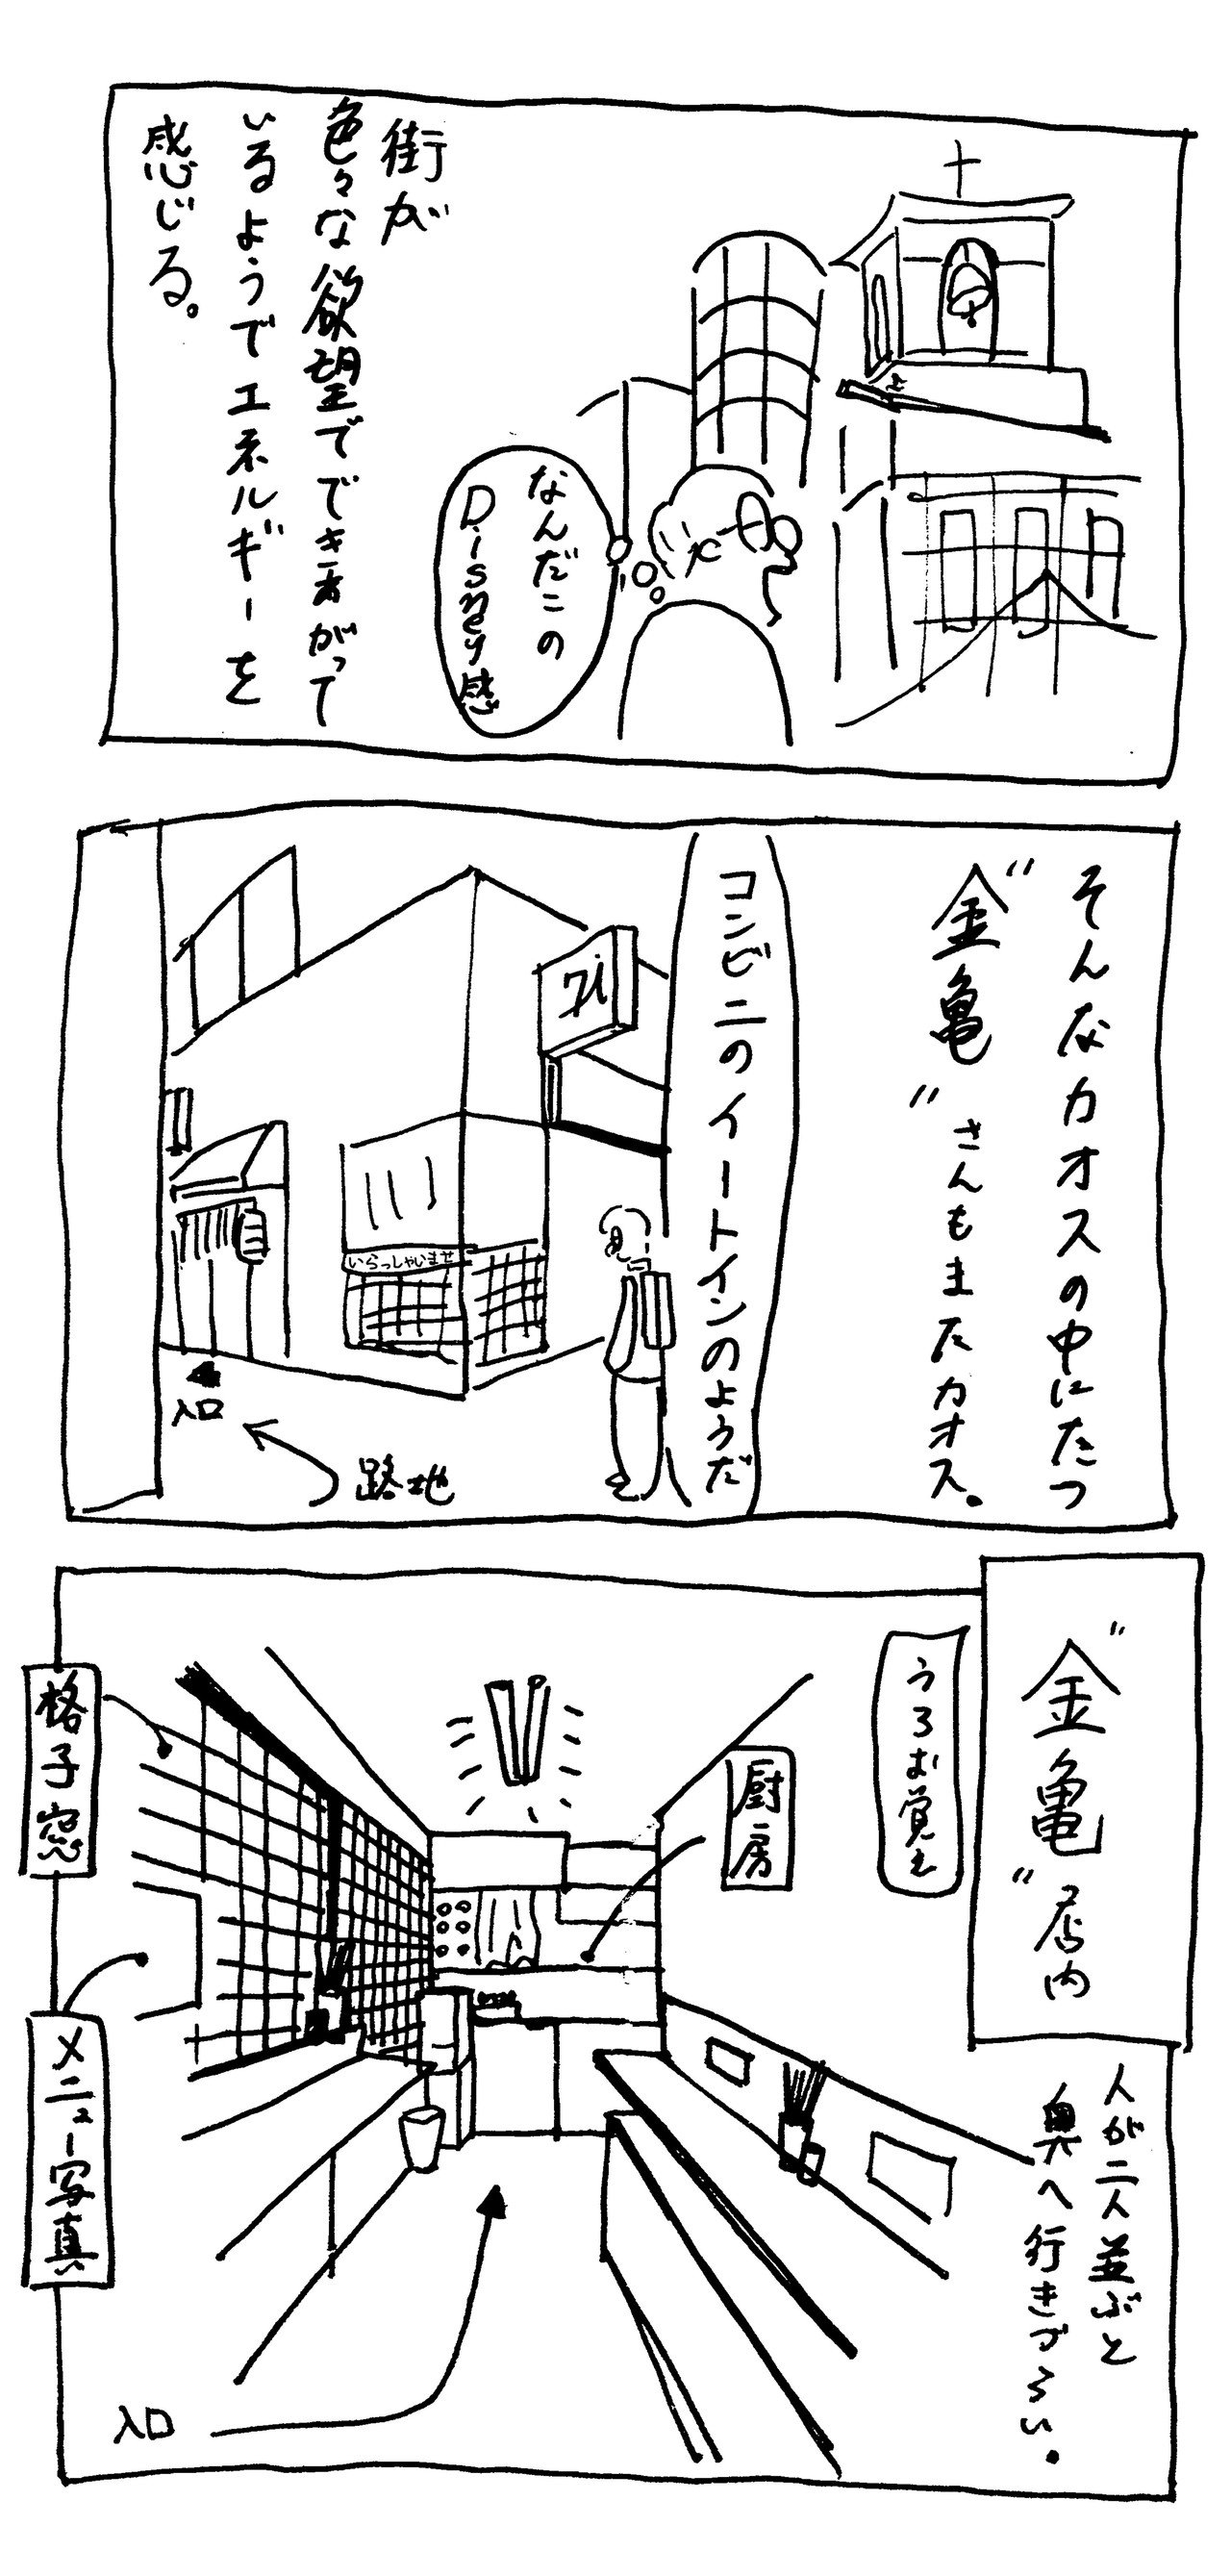 街が
色々な欲望でできあがって
いるようでエネルギーを
感じる。
なんだこの
Disney感
そんなカオスの中にたつ
"金亀"さんもまたカオス。
コンビニのイートインのようだ
いらっしゃいませ
入口
路地
"金亀"店内
うろお覚え
人が二人並ぶと
奥へ行きづらい。
厨房
格子窓
メニュー写真
入口